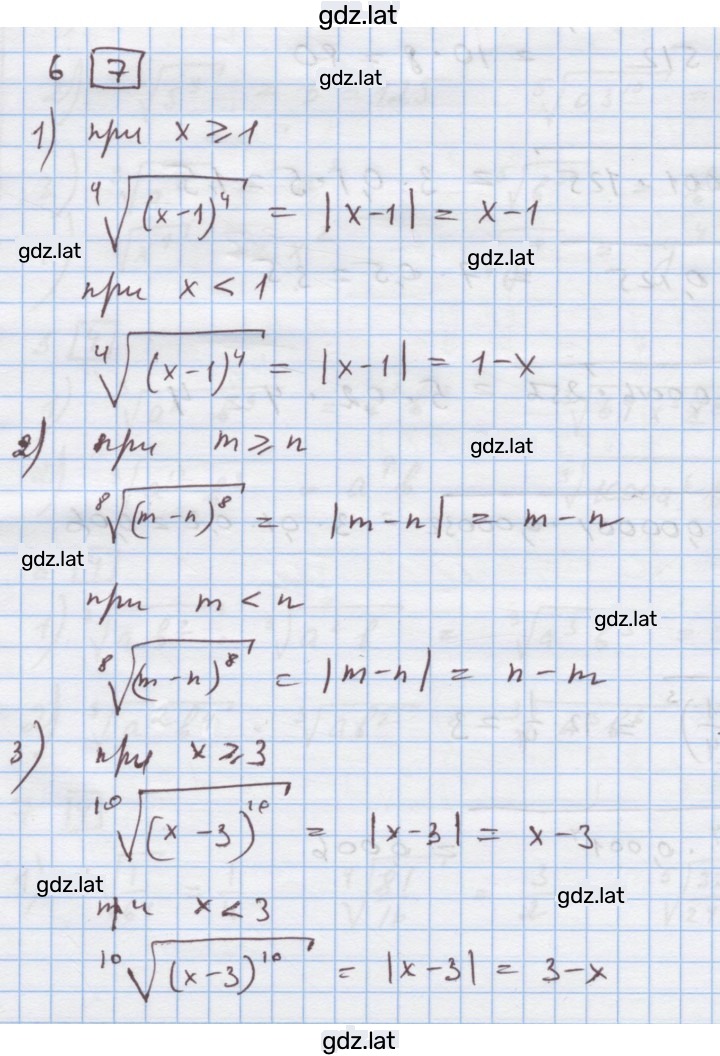 gdz.lat
6 7
gdz.lat
1) при x ⩾ 1
⁴√(x-1)⁴ = |x-1| = x-1
gdz.lat gdz.lat
при x < 1
⁴√(x-1)⁴ = |x-1| = 1-x
2) при m ⩾ n gdz.lat
⁸√(m-n)⁸ = |m-n| = m-n
gdz.lat
при m < n gdz.lat
⁸√(m-n)⁸ = |m-n| = n-m
3) при x ⩾ 3
¹⁰√(x-3)¹⁰ = |x-3| = x-3
gdz.lat gdz.lat
при x < 3
¹⁰√(x-3)¹⁰ = |x-3| = 3-x
gdz.lat